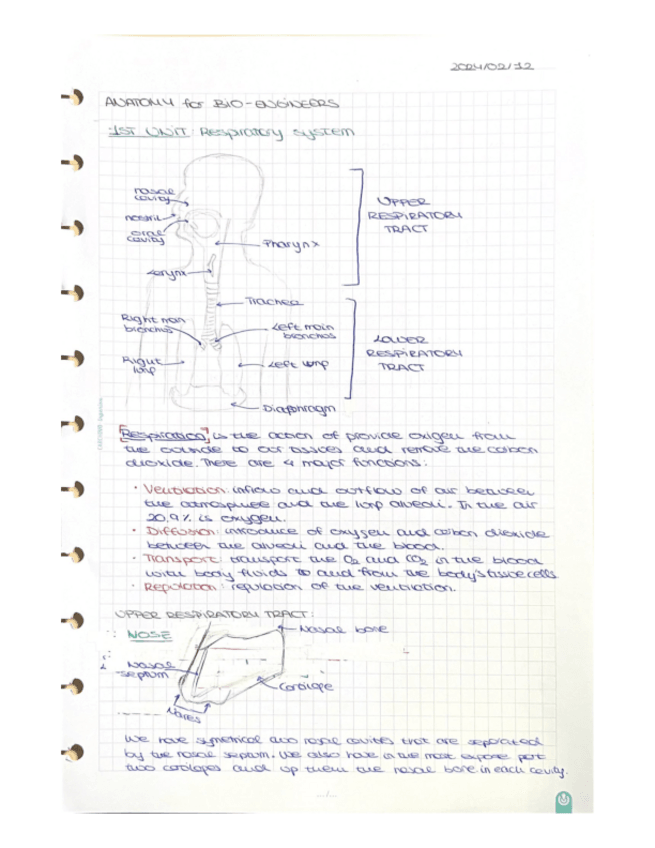 2024/02/12
ANATOMY for BIO-ENGINEERS
1ST UNIT: Respiratory system
nasal cavity
nostril
oral cavity
Pharynx
Larynx
UPPER RESPIRATORY TRACT
Trachea
Right main bronchus
Left main bronchus
Right lung
Left lung
Diaphragm
LOWER RESPIRATORY TRACT
"Respiration" is the action of provide oxigen from
the outside to our tissues and remove the carbon
dioxide. There are 4 major functions:
· Ventilation: inflow and outflow of air between
the atmosphere and the lung alveoli. In the air
20,9% is oxygen.
· Diffusion: of oxygen and carbon dioxide
between the alveoli and the blood.
· Transport: transport the O2 and CO2 in the blood
with body fluids to and from the body's tissue cells.
· Regulation: regulation of the ventilation.
UPPER RESPIRATORY TRACT:
NOSE
Nasal bone
Nasal septum
Cartilage
Nares
We have symetrical two nasal cavities that are separated
by the nasal septum. We also have in the most expose part
two cartilages and up them the nasal bone in each cavity.
.../...